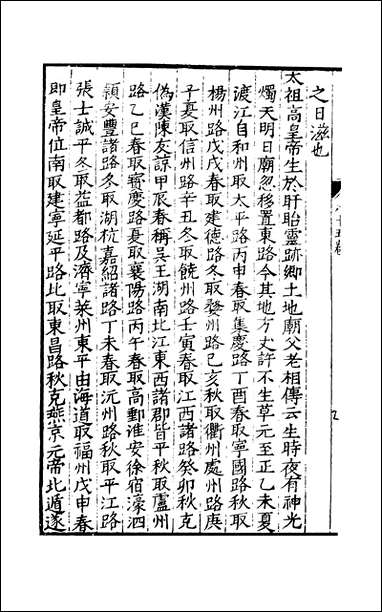 之日滋也
太祖高皇帝生於盱眙靈跡鄉土地廟父老相傳云生時夜有神光
燭天明日廟忽移置東路今其地方丈許不生草元至正乙未夏
渡江自和州取太平路丙申春取集慶路丁酉春取寧國路秋取
楊州路戊戌春取建德路冬取婺州路己亥秋取衢州處州路庚
子夏取信州路辛丑冬取饒州路壬寅春取江西諸路癸卯秋克
偽漢陳友諒甲辰春稱吳王湖南北江東西諸郡皆平秋取廬州
路乙巳春取寶慶路夏取襄陽路丙午春取高郵淮安徐宿濠泗
潁安豐諸路冬取湖杭嘉紹諸路丁未春取沅州路秋取平江路
張士誠平冬取益都路及濟寧萊州東平由海道取福州戊申春
即皇帝位南取建寧延平路北取東昌路秋克燕京元帝北遁遂